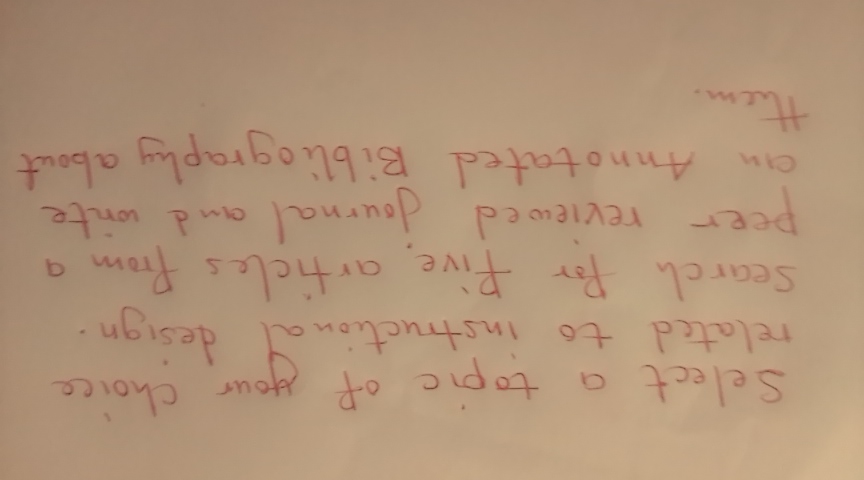 Select a topic of your choice
related to instructional design.
Search for five articles from a
peer reviewed journal and write
an Annotated Bibliography about
them.